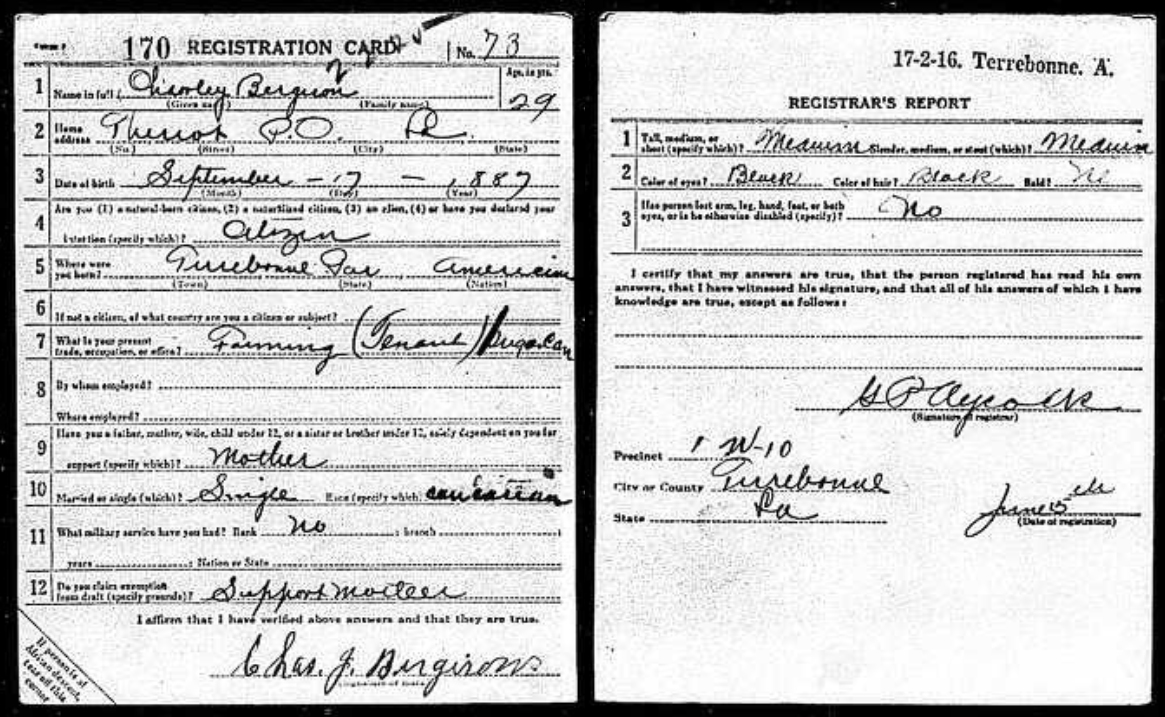 170 REGISTRATION CARD No. 73
1 Name in full Charley Bergeron Age, in yrs. 29
(Given name) (Family name)
2 Home address Theriot P.O. La.
(No.) (Street) (City) (State)
3 Date of birth September - 17 - 1887
(Month) (Day) (Year)
4 Are you (1) a natural-born citizen, (2) a naturalized citizen, (3) an alien, (4) or have you declared your
intention (specify which)? Citizen
5 Where were you born? Terrebonne Par American
(Town) (State) (Nation)
6 If not a citizen, of what country are you a citizen or subject?
7 What is your present trade, occupation, or office? Farming (Tenant) Sugar Can
8 By whom employed?
Where employed?
9 Have you a father, mother, wife, child under 12, or a sister or brother under 12, solely dependent on you for
support (specify which)? Mother
10 Married or single (which)? Single Race (specify which) caucasian
11 What military service have you had? Rank No ; branch ;
years ; Nation or State
12 Do you claim exemption from draft (specify grounds)? Support mother
I affirm that I have verified above answers and that they are true.
Chas. J. Bergerons
If person is of
African descent,
tear off this
corner
17-2-16. Terrebonne. A.
REGISTRAR'S REPORT
1 Tall, medium, or short (specify which)? Medium Slender, medium, or stout (which)? Medium
2 Color of eyes? Black Color of hair? Black Bald? No
3 Has person lost arm, leg, hand, foot, or both eyes, or is he otherwise disabled (specify)? No
I certify that my answers are true, that the person registered has read his own
answers, that I have witnessed his signature, and that all of his answers of which I have
knowledge are true, except as follows:
G P Aycock
(Signature of registrar)
Precinct 1 W-10
City or County Terrebonne
State La
June 5
(Date of registration)